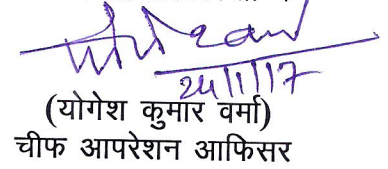 24/1/17
(योगेश कुमार वर्मा)
चीफ आपरेशन आफिसर